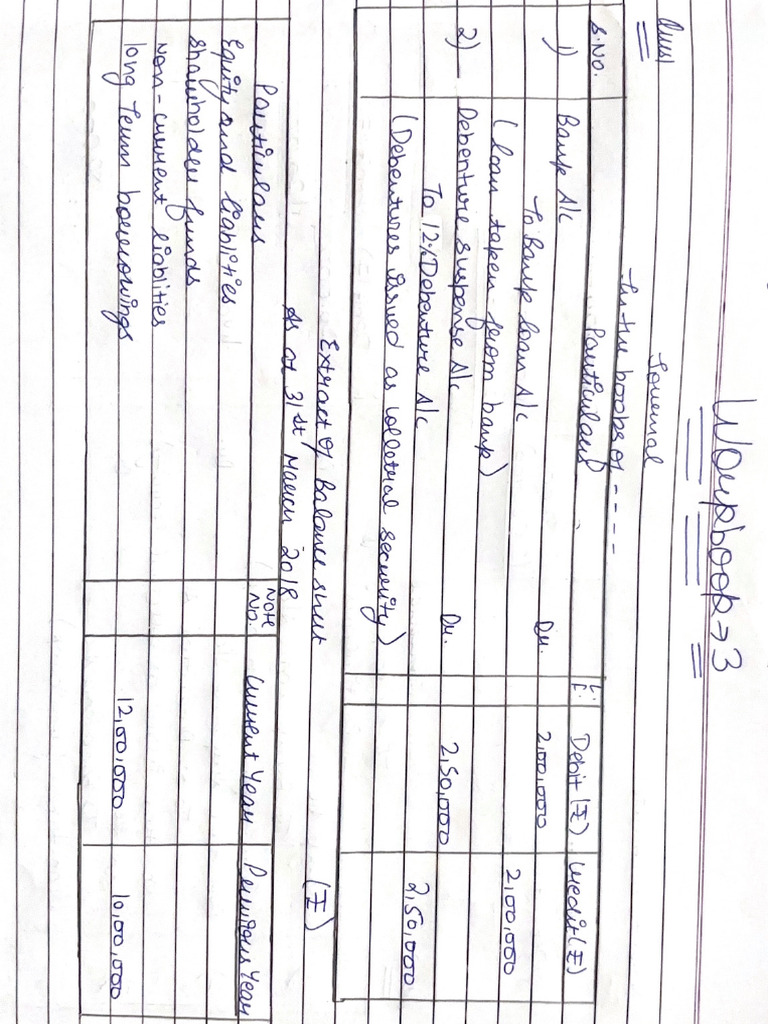 Workbook→3
Ques1 Journal
In the books of ----
S.No. Particulars L.F. Debit (₹) Credit (₹)
1) Bank A/c Dr. 2,00,000
To Bank loan A/c 2,00,000
(loan taken from bank)
2) Debenture suspense A/c Dr. 2,50,000
To 12% Debenture A/c 2,50,000
(Debentures issued as collatral security)
Extract of Balance sheet
As at 31st March 2018 (₹)
Particulars Note No. Current Year Previous Year
Equity and liablities
Shareholder funds
Non-current liablities
long Term borrowings 12,00,000 10,00,000